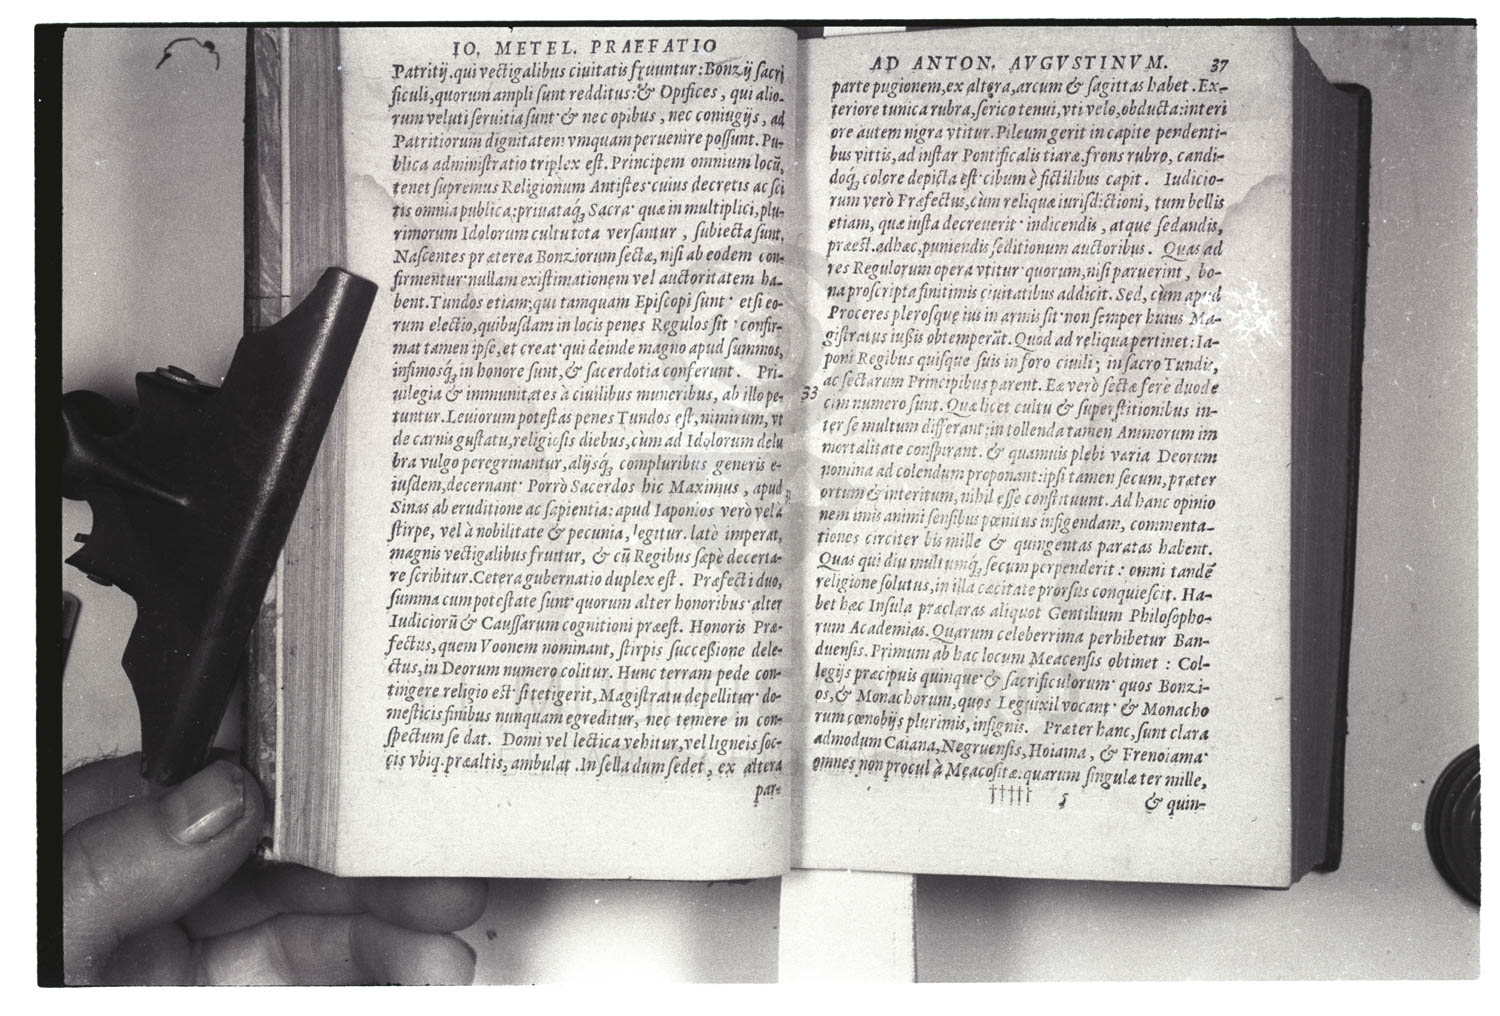 IO. METEL. PRAEFATIO
Patritij, qui vectigalibus ciuitatis fruuntur: Bonzij sacri
ficuli, quorum ampli sunt redditus: & Opifices, qui alio-
rum veluti seruitia sunt· & nec opibus, nec coniugijs, ad
Patritiorum dignitatem vmquam peruenire possunt. Pu-
blica administratio triplex est. Principem omnium locū,
tenet supremus Religionum Antistes· cuius decretis ac sci
tis omnia publica: priuataq́; Sacra· quæ in multiplici, plu-
rimorum Idolorum cultu tota versantur, subiecta sunt.
Nascentes præterea Bonziorum sectæ, nisi ab eodem con-
firmentur· nullam existimationem vel auctoritatem ha-
bent. Tundos etiam; qui tamquam Episcopi sunt· etsi eo-
rum electio, quibusdam in locis penes Regulos sit· confir-
mat tamen ipse, et creat· qui deinde magno apud summos,
infimosq́; in honore sunt, & sacerdotia conferunt. Pri-
uilegia & immunitates à ciuilibus muneribus, ab illo pe-
tuntur. Leuiorum potestas penes Tundos est, nimirum, vt
de carnis gustatu, religiosis diebus, cùm ad Idolorum delu
bra vulgo peregrinantur, alijsq́; compluribus generis e-
iusdem, decernant· Porrò Sacerdos hic Maximus, apud
Sinas ab eruditione ac sapientia: apud Iaponios verò vel à
stirpe, vel à nobilitate & pecunia, legitur. latè imperat,
magnis vectigalibus fruitur, & cū Regibus sæpè decerta-
re scribitur. Cetera gubernatio duplex est. Præfecti duo,
summa cum potestate sunt· quorum alter honoribus· alter
Iudiciorū & Caussarum cognitioni præest. Honoris Præ-
fectus, quem Voonem nominant, stirpis successione dele-
ctus, in Deorum numero colitur. Hunc terram pede con-
tingere religio est· si tetigerit, Magistratu depellitur· do-
mesticis finibus nunquam egreditur, nec temere in con-
spectum se dat. Domi vel lectica vehitur, vel ligneis soc-
cis vbiq. præaltis, ambulat. In sella dum sedet, ex altera
par-
AD ANTON. AVGVSTINVM. 37
parte pugionem, ex altera, arcum & sagittas habet. Ex-
teriore tunica rubra, serico tenui, vti velo, obducta: interi
ore autem nigra vtitur. Pileum gerit in capite pendenti-
bus vittis, ad instar Pontificalis tiaræ. frons rubro, candi-
doq́; colore depicta est· cibum è fictilibus capit. Iudicio-
rum verò Præfectus, cùm reliquæ iurisdictioni, tum bellis
etiam, quæ iusta decreuerit· indicendis, atque sedandis,
præest. adhæc, puniendis seditionum auctoribus. Quas ad
res Regulorum opera vtitur· quorum, nisi paruerint, bo-
na proscripta finitimis ciuitatibus addicit. Sed, cùm apud
Proceres plerosque ius in armis sit· non semper huius Ma-
gistratus iussis obtemperāt. Quod ad reliqua pertinet: Ia-
poni Regibus quisque suis in foro ciuili; in sacro Tundis,
ac sectarum Principibus parent. Eæ verò sectæ ferè duode
33
cim numero sunt. Quæ licet cultu & superstitionibus in-
ter se multum differant: in tollenda tamen Animorum im
mortalitate conspirant. & quamuis plebi varia Deorum
nomina ad colendum proponant: ipsi tamen secum, præter
ortum & interitum, nihil esse constituunt. Ad hanc opinio
nem imis animi sensibus pœnitus infigendam, commenta-
tiones circiter bis mille & quingentas paratas habent.
Quas qui diu multumq́; secum perpenderit: omni tandē
religione solutus, in illa cæcitate prorsus conquiescit. Ha-
bet hæc Insula præclaras aliquot Gentilium Philosopho-
rum Academias. Quarum celeberrima perhibetur Ban-
duensis. Primum ab hac locum Meacensis obtinet: Col-
legijs præcipuis quinque· & sacrificulorum· quos Bonzi-
os, & Monachorum, quos Leguixil vocant· & Monacho
rum cœnobijs plurimis, insignis. Præter hanc, sunt clara
admodum Caiana, Negruensis, Hoiama, & Frenoiama·
omnes non procul à Meaco sitæ. quarum singulæ ter mille,
††††† 5 & quin-